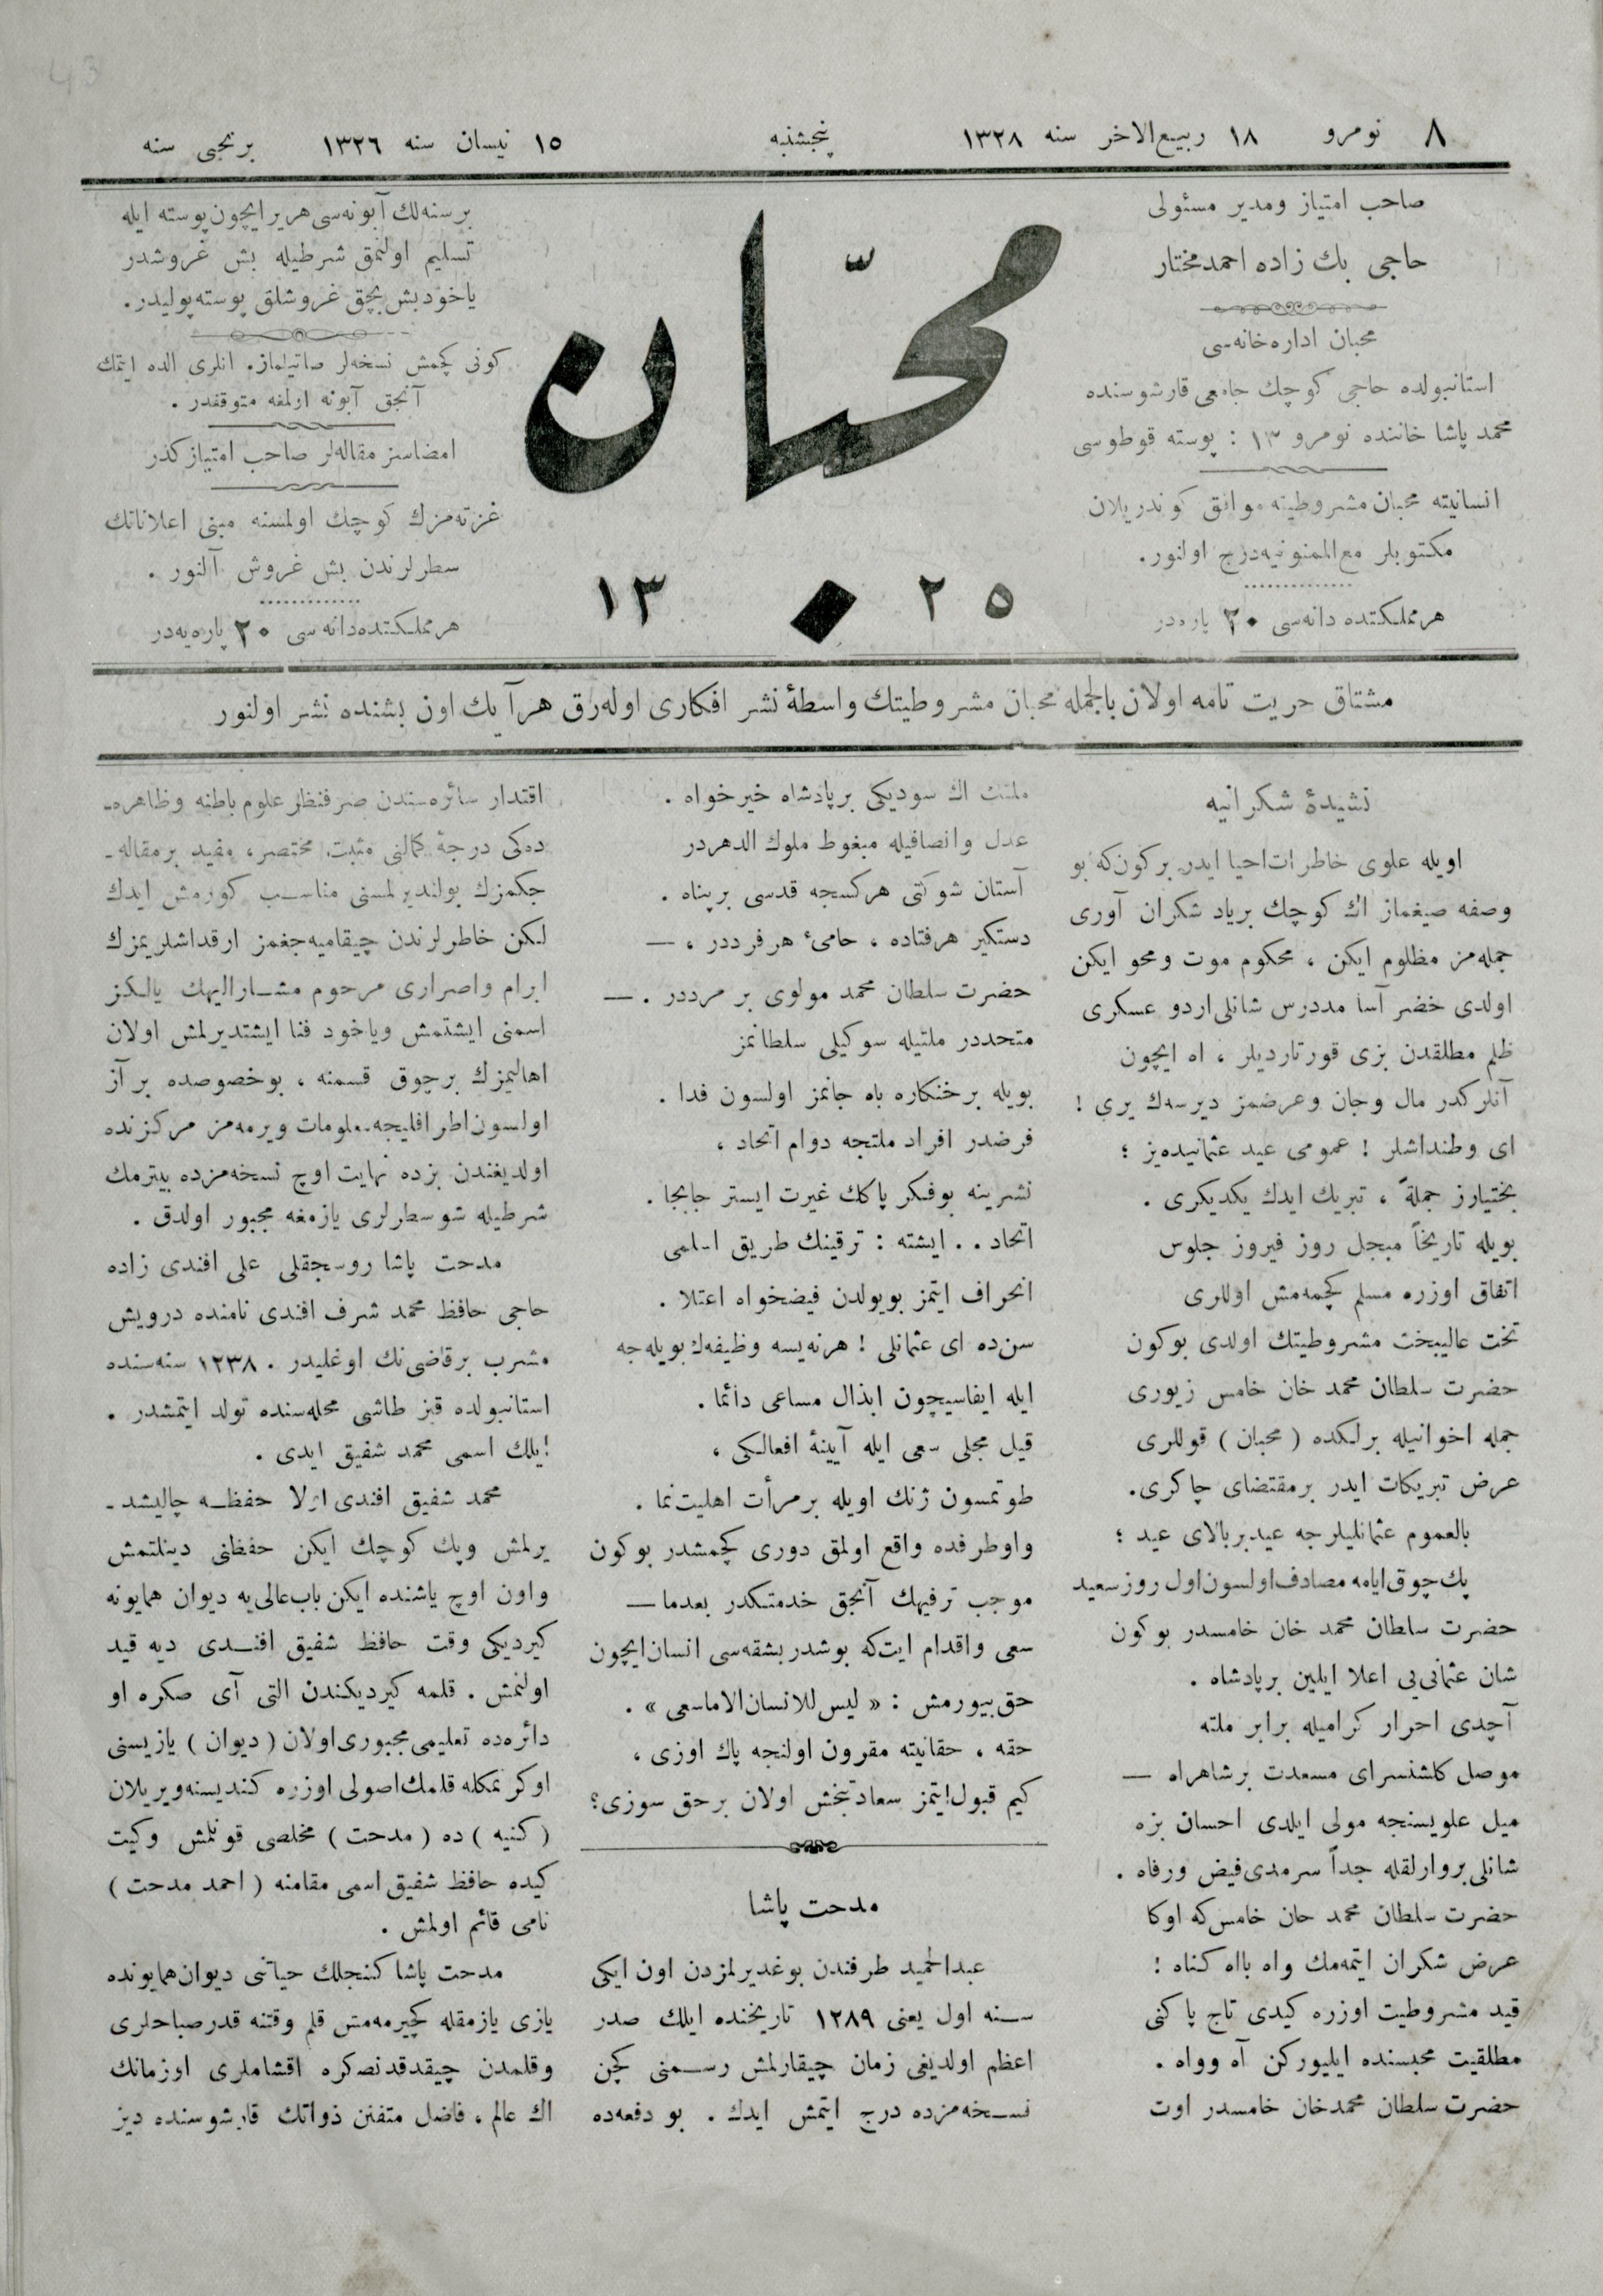 ٨ نومرو ١٨ ربیع‌الاخر سنه ١٣٢٨ پنجشنبه ١٥ نیسان سنه ١٣٢٦ برنجی سنه
صاحب امتیاز ومدیر مسئولی
حاجی بك زاده احمد مختار
محبان اداره‌خانه‌سی
استانبولده حاجی كوچك جامعی قارشوسنده
محمد پاشا خاننده نومرو ١٣ : پوسته قوطوسی
انسانیته محبان مشروطیته موافق كوندریلان
مكتوبلر مع‌الممنونیه درج اولنور.
هر مملكتده دانه‌سی ٢٠ پاره‌در
محبّان
١٣٢٥
برسنه‌لك آبونه‌سی هریر ایچون پوسته ایله
تسلیم اولنمق شرطیله بش غروشدر
یاخود بش بچق غروشلق پوسته پولیدر.
كونی كچمش نسخه‌لر صاتیلماز. انلری الده ایتمك
آنجق آبونه اولمغه متوقفدر .
امضاسز مقاله‌لر صاحب امتیازكدر
غزته‌مزك كوچك اولمسنه مبنی اعلاناتك
سطرلرندن بش غروش آلنور .
هر مملكتده دانه‌سی ٢٠ پاره‌یه‌در
مشتاق حریت تامه اولان بالجمله محبان مشروطیتك واسطهٔ نشر افكاری اوله‌رق هر آیك اون بشنده نشر اولنور
نشیدهٔ شكرانیه
اویله علوی خاطرات احیا ایدر بركون‌كه بو
وصفه صیغماز اك كوچك بریاد شكران آوری
جمله‌مز مظلوم ایكن ، محكوم موت ومحو ایكن
اولدی خضر آسا مددرس شانلی اردو عسكری
ظلم مطلقدن بزی قورتاردیلر ، اه ایچون
آنلركدر مال وجان وعرضمز دیرسه‌ك یری !
ای وطنداشلر ! عمومی عید عثمانیده‌یز ؛
بختیارز جملةً ، تبریك ایدك یكدیكری .
بویله تاریخاً مبجل روز فیروز جلوس
اتفاق اوزره مسلم كچمه‌مش اوللری
تخت عالیبخت مشروطیتك اولدی بوكون
حضرت سلطان محمد خان خامس زیوری
جمله اخوانیله برلكده ( محبان ) قوللری
عرض تبریكات ایدر برمقتضای چاكری.
بالعموم عثمانلیلرجه عید بربالای عید ؛
پك چوق ایامه مصادف اولسون اول روز سعید
حضرت سلطان محمد خان خامسدر بوكون
شان عثمانی‌یی اعلا ایلین برپادشاه .
آچدی احرار كرامیله برابر ملته
موصل كلشنسرای مسعدت برشاهراه —
میل علویسنجه مولی ایلدی احسان بزه
شانلی بروارلقله جداً سرمدی فیض ورفاه .
حضرت سلطان محمد خان خامس‌كه اوكا
عرض شكران ایتمه‌مك واه باه كناه !
قید مشروطیت اوزره كیدی تاج پاكنی
مطلقیت محبسنده ایلیوركن آه وواه .
حضرت سلطان محمدخان خامسدر اوت
ملتك اك سودیكی برپادشاه خیرخواه .
عدل وانصافیله مبغوط ملوك الدهردر
آستان شوكتی هركسجه قدسی برپناه .
دستكیر هرفتاده ، حامیٔ هرفرددر ، —
حضرت سلطان محمد مولوی بر مرددر . —
متحددر ملتیله سوكیلی سلطانمز
بویله برخنكاره باه جانمز اولسون فدا .
فرضدر افراد ملتجه دوام اتحاد ،
نشرینه بوفكر پاكك غیرت ایستر جابجا .
اتحاد . . ایشته : ترقینك طریق اسلمی
انحراف ایتمز بویولدن فیضخواه اعتلا .
سن‌ده ای عثمانلی ! هرنه‌یسه وظیفه‌ك بویله‌جه
ایله ایفاسیچون ابذال مساعی دائما .
قیل مجلی سعی ایله آیینهٔ افعالكی ،
طوتمسون ژنك اویله برمرأت اهلیت نما .
واوطرفده واقع اولمق دوری كچمشدر بوكون
موجب ترفیهك آنجق خدمتكدر بعدما —
سعی واقدام ایت‌كه بوشدر بشقه‌سی انسان ایچون
حق بیورمش : « لیس للانسان الاماسعی » .
حقه ، حقانیته مقرون اولنجه پاك اوزی ،
كیم قبول ایتمز سعادتبخش اولان برحق سوزی؟
مدحت پاشا
عبدالحمید طرفندن بوغدیرلمزدن اون ایكی
سنه اول یعنی ١٢٨٩ تاریخنده ایلك صدر
اعظم اولدیغی زمان چیقارلمش رسمنی كچن
نسخه‌مزده درج ایتمش ایدك . بو دفعه‌ده
اقتدار سائره‌سندن صرفنظر علوم باطنه وظاهره‌ـ
ده‌كی درجهٔ كمالنی مثبت، مختصر، مفید برمقاله‌ـ
جكمزك بولندیرلمسنی مناسب كورمش ایدك
لكن خاطرلرندن چیقامیه‌جغمز ارقداشلریمزك
ابرام واصراری مرحوم مشارالیهك یالكز
اسمنی ایشتمش ویاخود فنا ایشتدیرلمش اولان
اهالیمزك برچوق قسمنه ، بوخصوصده بر آز
اولسون اطرافلیجه معلومات ویرمه‌مز مركزنده
اولدیغندن بزده نهایت اوچ نسخه‌مزده بیترمك
شرطیله شو سطرلری یازمغه مجبور اولدق .
مدحت پاشا روسجقلی علی افندی زاده
حاجی حافظ محمد شرف افندی نامنده درویش
مشرب برقاضی‌نك اوغلیدر . ١٢٣٨ سنه‌سنده
استانبولده قیز طاشی محله‌سنده تولد ایتمشدر .
ایلك اسمی محمد شفیق ایدی .
محمد شفیق افندی اولا حفظه چالیشدـ
یرلمش وپك كوچك ایكن حفظنی دیندلتمش
واون اوچ یاشنده ایكن باب‌عالی‌یه دیوان همایونه
كیردیكی وقت حافظ شفیق افندی دیه قید
اولنمش . قلمه كیردیكندن التی آی صكره او
دائره‌ده تعلیمی مجبوری اولان ( دیوان ) یازیسنی
اوكرنمكله قلمك اصولی اوزره كندیسنه ویریلان
( كنیه ) ده ( مدحت ) مخلصی قونلمش وكیت
كیده حافظ شفیق اسمی مقامنه ( احمد مدحت )
نامی قائم اولمش .
مدحت پاشا كنجلك حیاتنی دیوان‌همایونده
یازی یازمقله كچیرمه‌مش قلم وقتنه قدر صباحلری
وقلمدن چیقدقدنصكره اقشاملری اوزمانك
اك عالم ، فاضل متفنن ذواتك قارشوسنده دیز